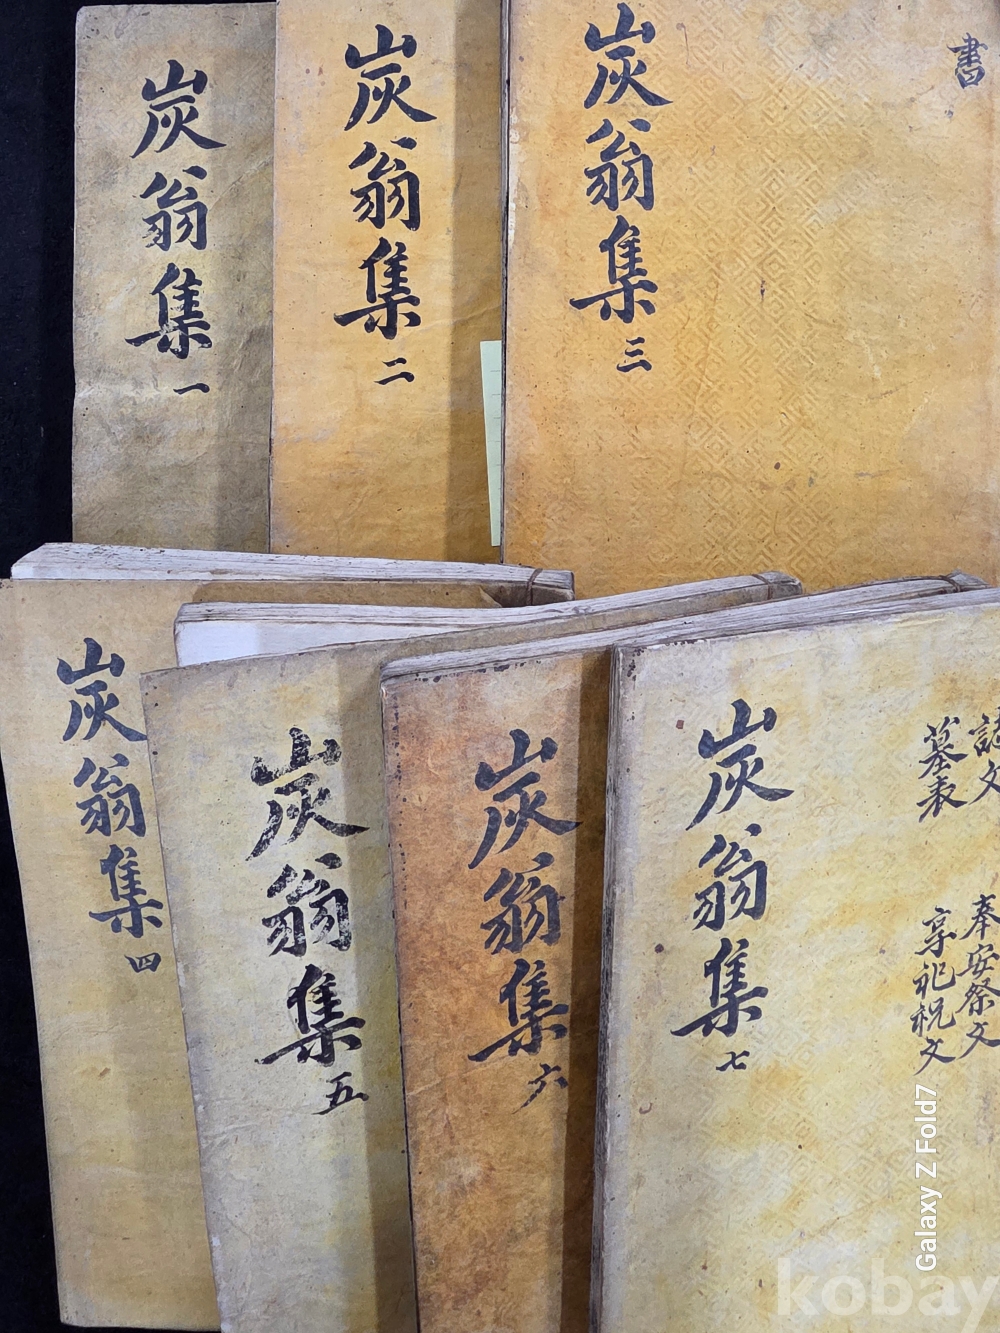 炭翁集 一
炭翁集 二
炭翁集 三
書
炭翁集 四
炭翁集 五
炭翁集 六
炭翁集 七
記文
墓表
奉安祭文
享祀祝文
Galaxy Z Fold7
kobay